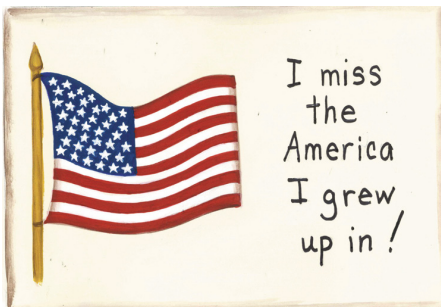 I miss
the
America
I grew
up in!